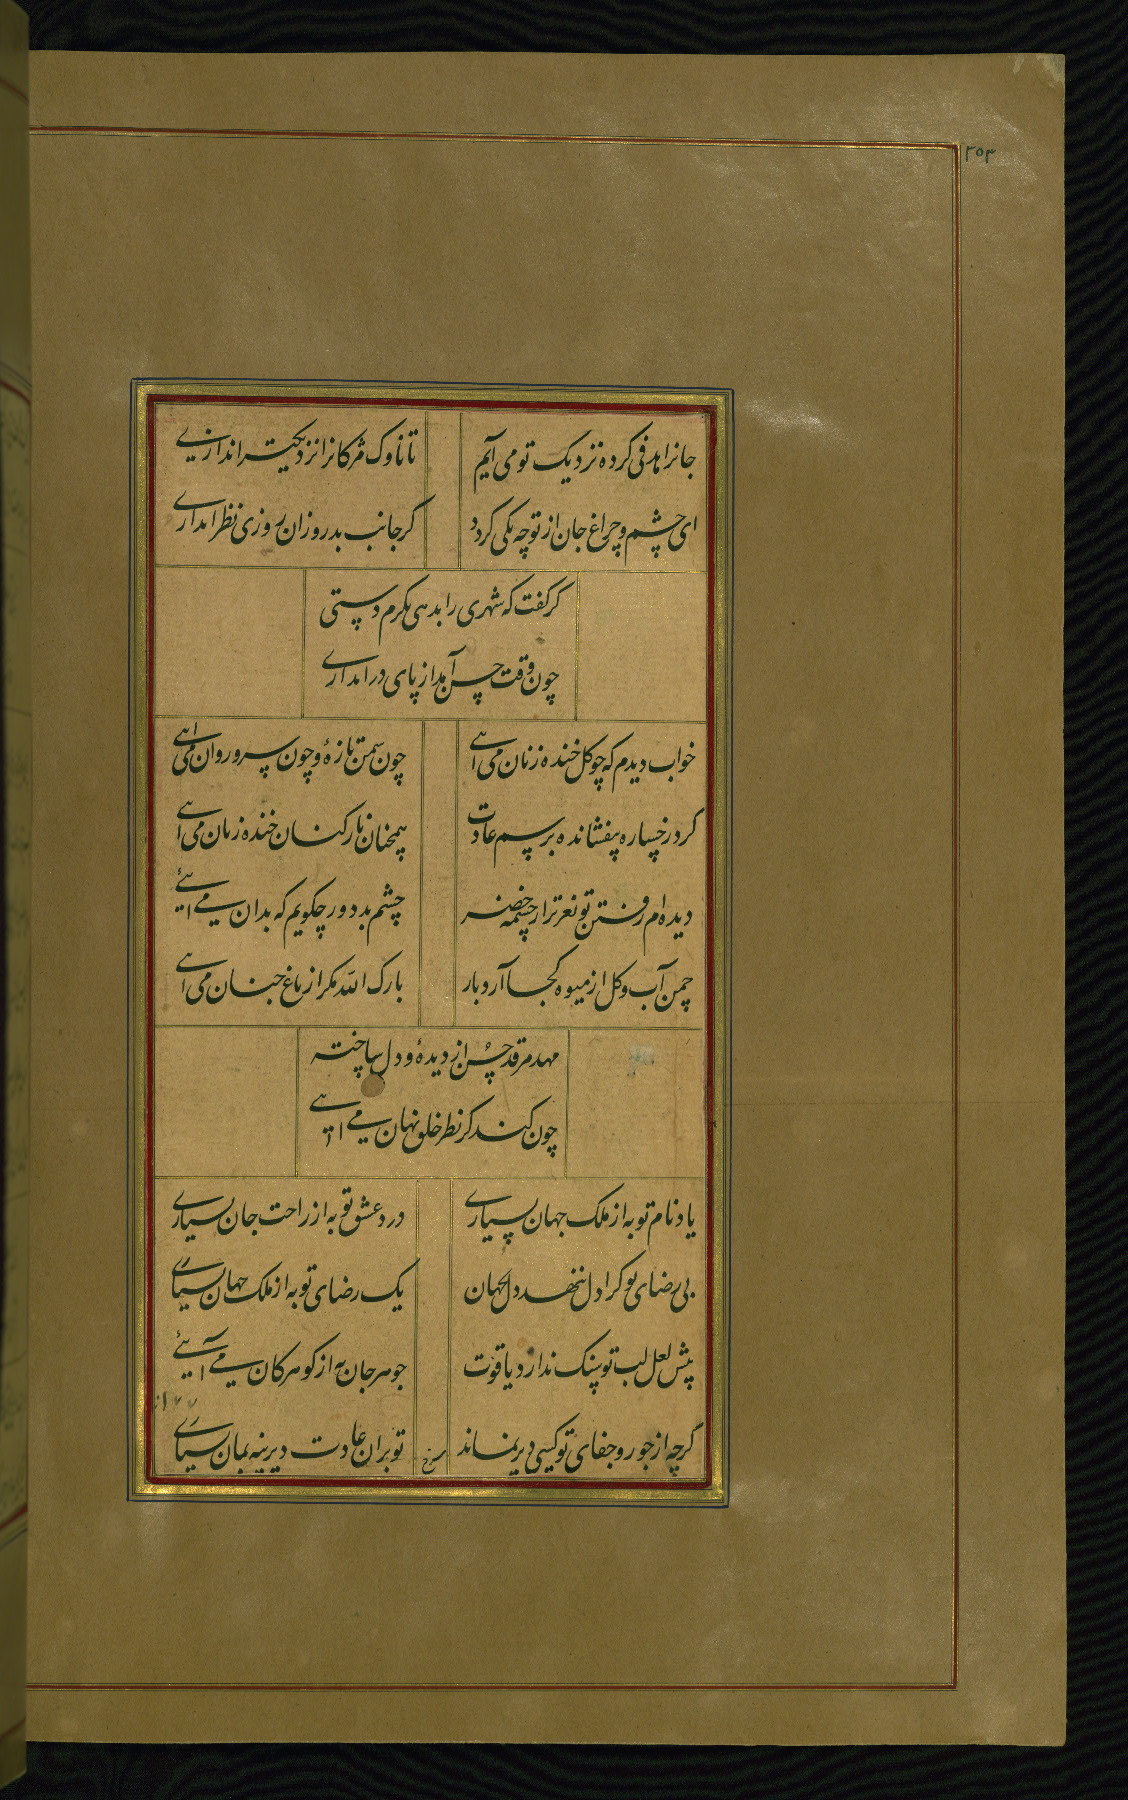 ۲۵۳
جانرا هدفی کرده نزدیک تو می آیم
تا ناوک مژکانرا نزدیکتر اندازی
ای چشم و چراغ جان از تو چه کمی کردد
کر جانب بدروزان روزی نظر اندازی
کر کفت که شهری را بدهی مکرم دستی
چون وقت حسن آمد از پای در اندازی
خواب دیدم که چو کل خنده زنان می آیی
چون سمن تازه و چون سرو روان می آیی
کرد رخساره بیفشانده بر رسم عادت
همچنان ناز کنان خنده زنان می آیی
دیده ام رفتن تو نغزتر از چشمه خضر
چشم بد دور چکویم که بدان می آیی
چمن آب و کل از میوه کجا آرد بار
بارک الله مکر از باغ جنان می آیی
مهد مرقد حسن از دیده و دل ساخته
چون کند کز نظر خلق نهان می آیی
یاد نام تو به از ملک جهان بسیاری
درد عشق تو به از راحت جان بسیاری
بی رضای تو کرا دل ننهد دل بجهان
یک رضای تو به از ملک جهان بسیاری
پیش لعل لب تو سنک ندارد یاقوت
جوهر جان به از کوهر کان می آیی
کرچه از جور و جفای تو کسی دیر نماند
تو بران عادت دیرینه بمان بسیاری